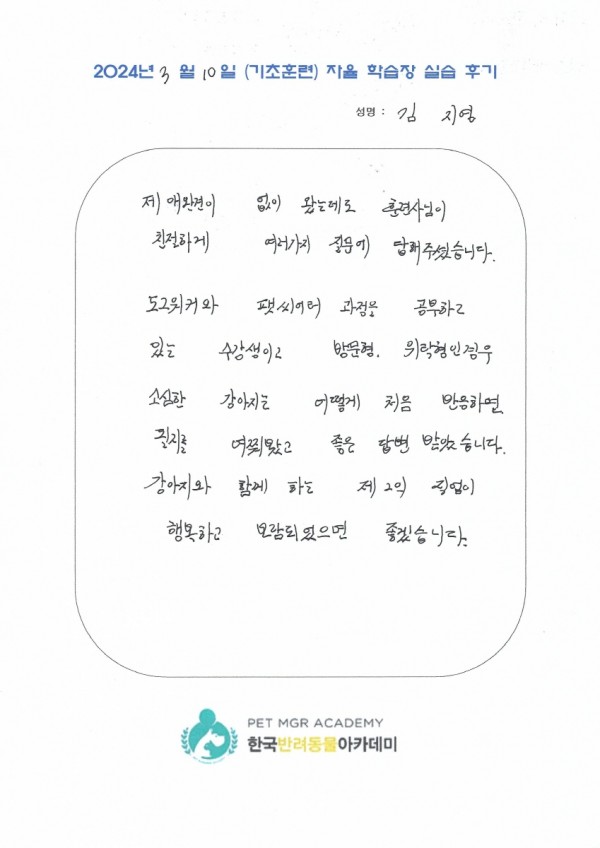 2024년 3 월 10 일 (기초훈련) 자율 학습장 실습 후기
성명 : 김 지영
제 애완견이 없이 왔는데도 훈련사님이
친절하게 여러가지 질문에 답해주셨습니다.
도그워커와 팻씨터 과정을 공부하고
있는 수강생이고 방문형, 위탁형인경우
소심한 강아지는 어떻게 처음 반응하면
될지를 여쭤봤고 좋은 답변 받았습니다.
강아지와 함께 하는 제2의 직업이
행복하고 보람되었으면 좋겠습니다.
PET MGR ACADEMY
한국반려동물아카데미